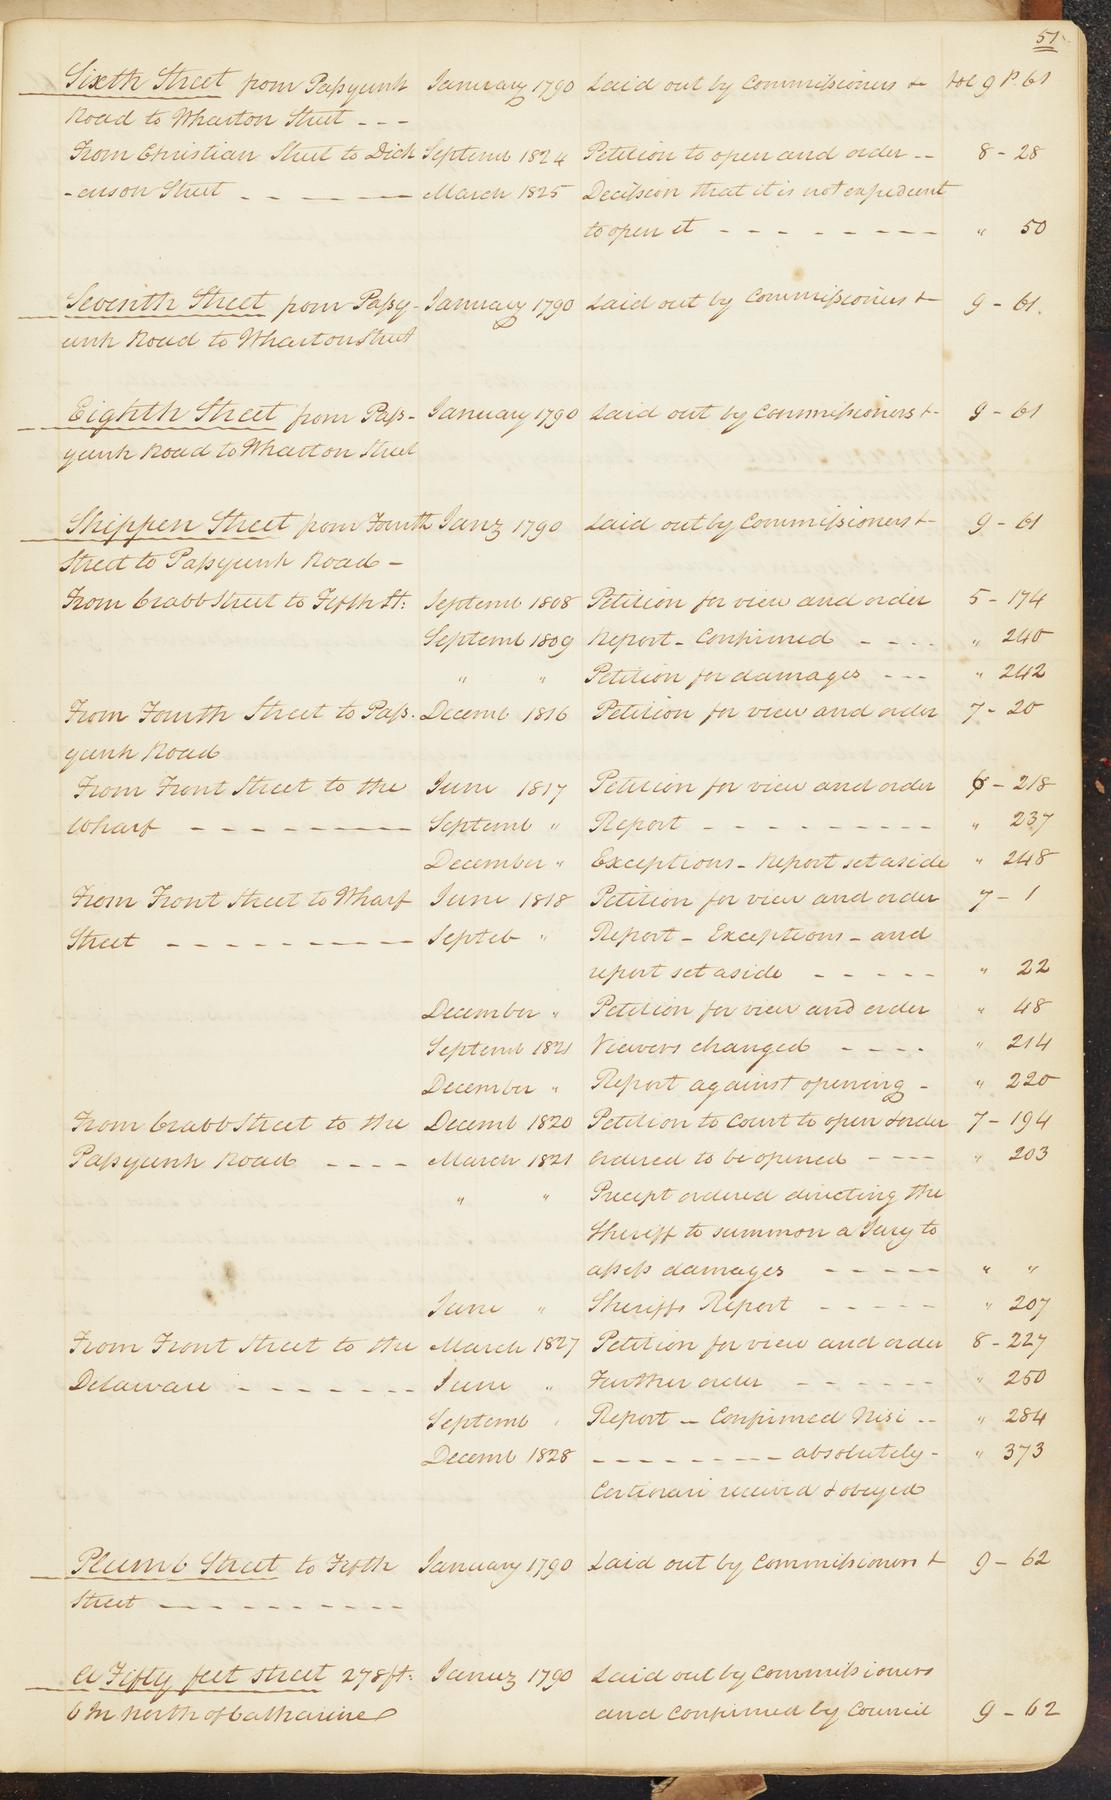 51
Sixth Street from Passyunk January 1790 Laid out by Commissioners &c Vol 9 P. 61
Road to Wharton Street - - -
From Christian Street to Dick Septemb 1824 Petition to open and order - - 8 - 28
- enson Street - - - - - March 1825 Decission that it is not expedient
to open it - - - - - - - - " 50
Seventh Street from Passy- January 1790 Laid out by Commissioners & 9 - 61.
unk Road to Wharton Street
Eighth Street from Pass- January 1790 Laid out by Commissioners & 9 - 61
yunk Road to Wharton Street
Shippen Street from Fourth Jany 1790 Laid out by Commissioners & 9 - 61
Street to Passyunk Road -
From Crabb Street to Fifth St: Septemb 1808 Petition for view and order 5 - 174
Septemb 1809 Report - Confirmed - - - - " 240
" " Petition for damages - - - " 242
From Fourth Street to Pass- Decemb 1816 Petition for view and order 7 - 20
yunk Road
From Front Street to the June 1817 Petition for view and order 6 - 218
Wharf - - - - - - - - - Septemb " Report - - - - - - - - - - " 237
December " Exceptions - Report set aside " 248
From Front Street to Wharf June 1818 Petition for view and order 7 - 1
Street - - - - - - - - - - Septeb " Report - Exceptions - and
report set aside - - - - - " 22
December " Petition for view and order " 48
Septemb 1821 Viewers changed - - - - " 214
December " Report against opening - " 220
From Crabb Street to the Decemb 1820 Petition to Court to open & order 7 - 194
Passyunk Road - - - - March 1821 Ordered to be opened - - - - " 203
" " Precept ordered directing the
Sheriff to summon a Jury to
assess damages - - - - - " "
June " Sheriffs Report - - - - - " 207
From Front Street to the March 1827 Petition for view and order 8 - 227
Delaware - - - - - - - June " Further order - - - - - - " 250
Septemb " Report - Confirmed Nisi - - " 284
Decemb 1828 - - - - - - - - - absolutely - " 373
Certiorari received & obeyed
Plumb Street to Fifth January 1790 Laid out by Commissioners & 9 - 62
Street - - - - - - - - - - -
A Fifty feet street 278 ft: Januy 1790 Laid out by Commissioners
6 In North of Catharine and Confirmed by Council 9 - 62